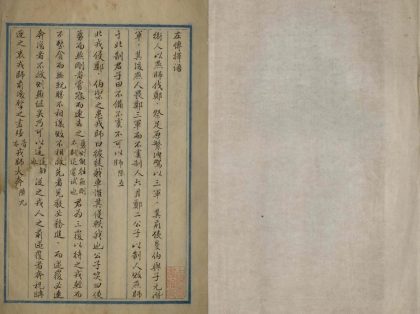 左傳擇語
衛人以燕師伐鄭祭足原繁洩駕以三軍軍其前使曼伯與子元潛
軍軍其後燕人畏鄭三軍而不虞制人六月鄭二公子以制人敗燕師
于北制君子曰不備不虞不可以師 隱五
北戎侵鄭鄭伯禦之患戎師曰彼徒我車懼其侵軼我也公子突曰使
勇而無剛者嘗寇而速去之 君為三覆以待之戎輕而
不整貪而無親勝不相讓敗不相救先者見獲必務進進而遇覆必速
奔後者不救則無繼矣乃可以逞 從之戎人之前遇覆者奔祝聃
逐之衷戎師前後擊之盡殪 戎師大奔 隱九